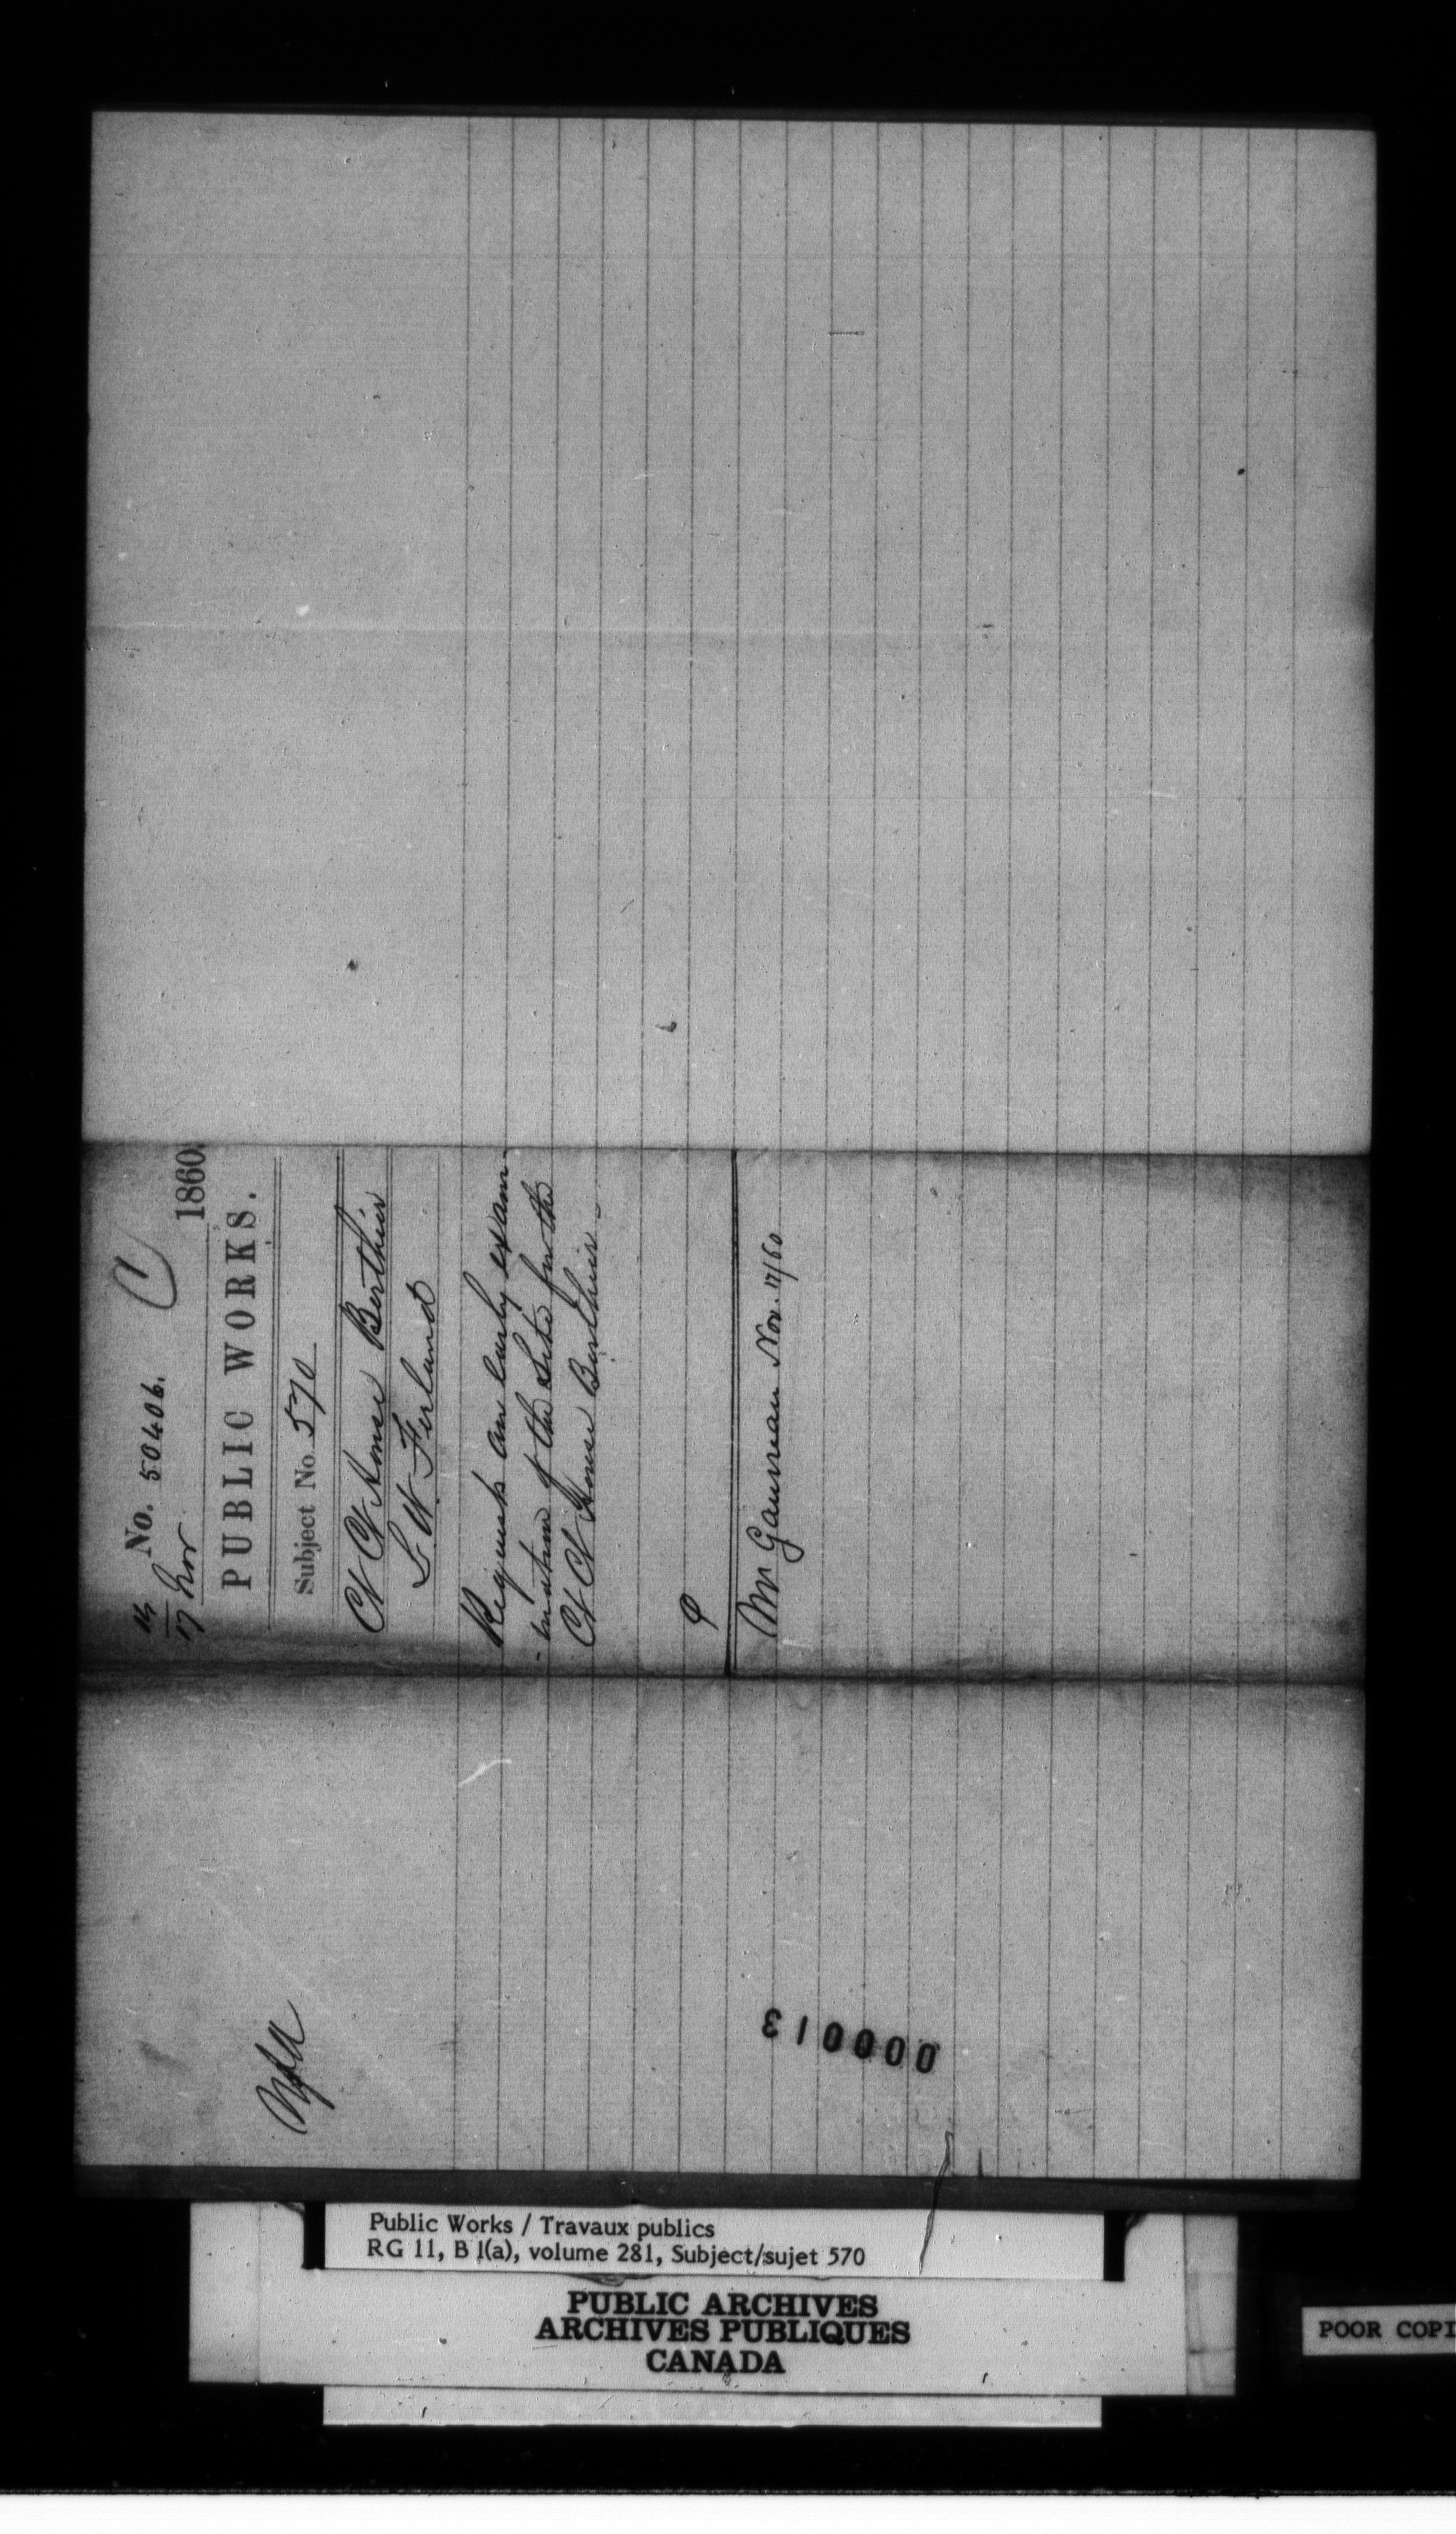 No. 50406.
14
17 Nov. 1860.
PUBLIC WORKS.
Subject No. 570
Ct House Berthier
L. U. Ferland
Requests an early exam-
-ination of the Site for the
Ct House Berthier
Mr Gauvreau Nov. 17/60
000013
Public Works / Travaux publics
RG 11, B 1(a), volume 281, Subject/sujet 570
PUBLIC ARCHIVES
ARCHIVES PUBLIQUES
CANADA
POOR COPI